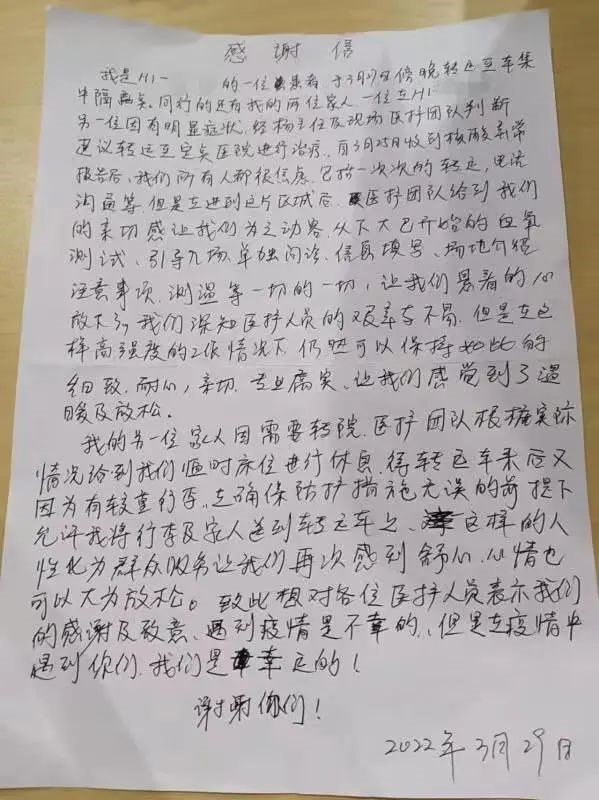 感谢信
我是H1- 的一位患者,于3月27日傍晚转运至本集
中隔离点。同行的还有我的两位家人,一位在H1-
另一位因有明显症状,经杨主任及现场医护团队判断
建议转运至定点医院进行治疗。自3月25日收到核酸异常
报告后,我们所有人都很焦虑,包括一次次的转运,电话
沟通等,但是在进到这片区域后,医护团队给到我们
的亲切感让我们为之动容,从下大巴开始的血氧
测试、引导入场、单独问诊、信息填写、场地介绍
注意事项、测温等一切的一切,让我们悬着的心
放下了,我们深知医护人员的艰辛与不易,但是在这
样高强度的工作情况下,仍然可以保持如此的
细致、耐心,亲切、专业属实、让我们感觉到了温
暖及放松。
我的另一位家人因需要转院,医护团队根据实际
情况给到我们临时床位进行休息,待转运车来后又
因为有较重行李,在确保防护措施无误的前提下
允许我将行李及家人送到转运车上、这样的人
性化为群众服务让我们再次感到舒心,心情也
可以大为放松。致此想对各位医护人员表示我们
的感谢及致意、遇到疫情是不幸的,但是在疫情中
遇到你们,我们是幸运的!
谢谢你们!
2022年3月29日